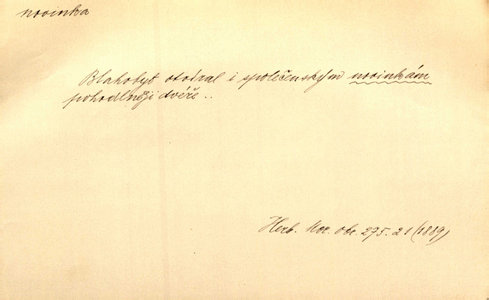 novinka
Blahobyt otvíral i společenským novinkám
pohodlněji dvéře..
Herb. Mor. obr. 275.21 (1889)